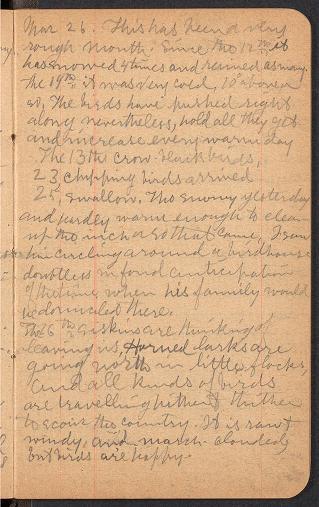 Mar 26. This has been a very
rough month. Since the 12th it
has snowed 4 times and rained as many.
The 19th it was very cold, 10° above
so, The birds have pushed right
along nevertheless, hold all they got
and increase every warm day
The 13th crow blackbirds,
23 chipping birds arrived
25, swallow. Tho snowy yesterday
and hardly warm enough to clean
up the inch or so that came, I saw
him circling around a birdhouse
doubtless in fond anticipation
of the time when his family would
be domiciled there.
The 26th siskins are thinking of
leaving us, Horned larks are
going north in little flocks,
and all kinds of birds
are travelling hither & thither
to scour the country. It is raw &
windy, and march-cloudedly
but birds are happy.